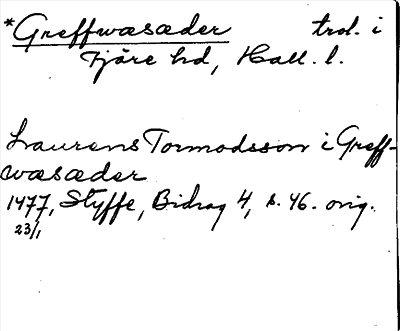 *Greffwæsæder trol. i
Fjäre hd, Hall. l.
Laurens Tormodsson i Greff-
wæsæder
1477, Styffe, Bidrag 4, s. 46. orig.
23/1